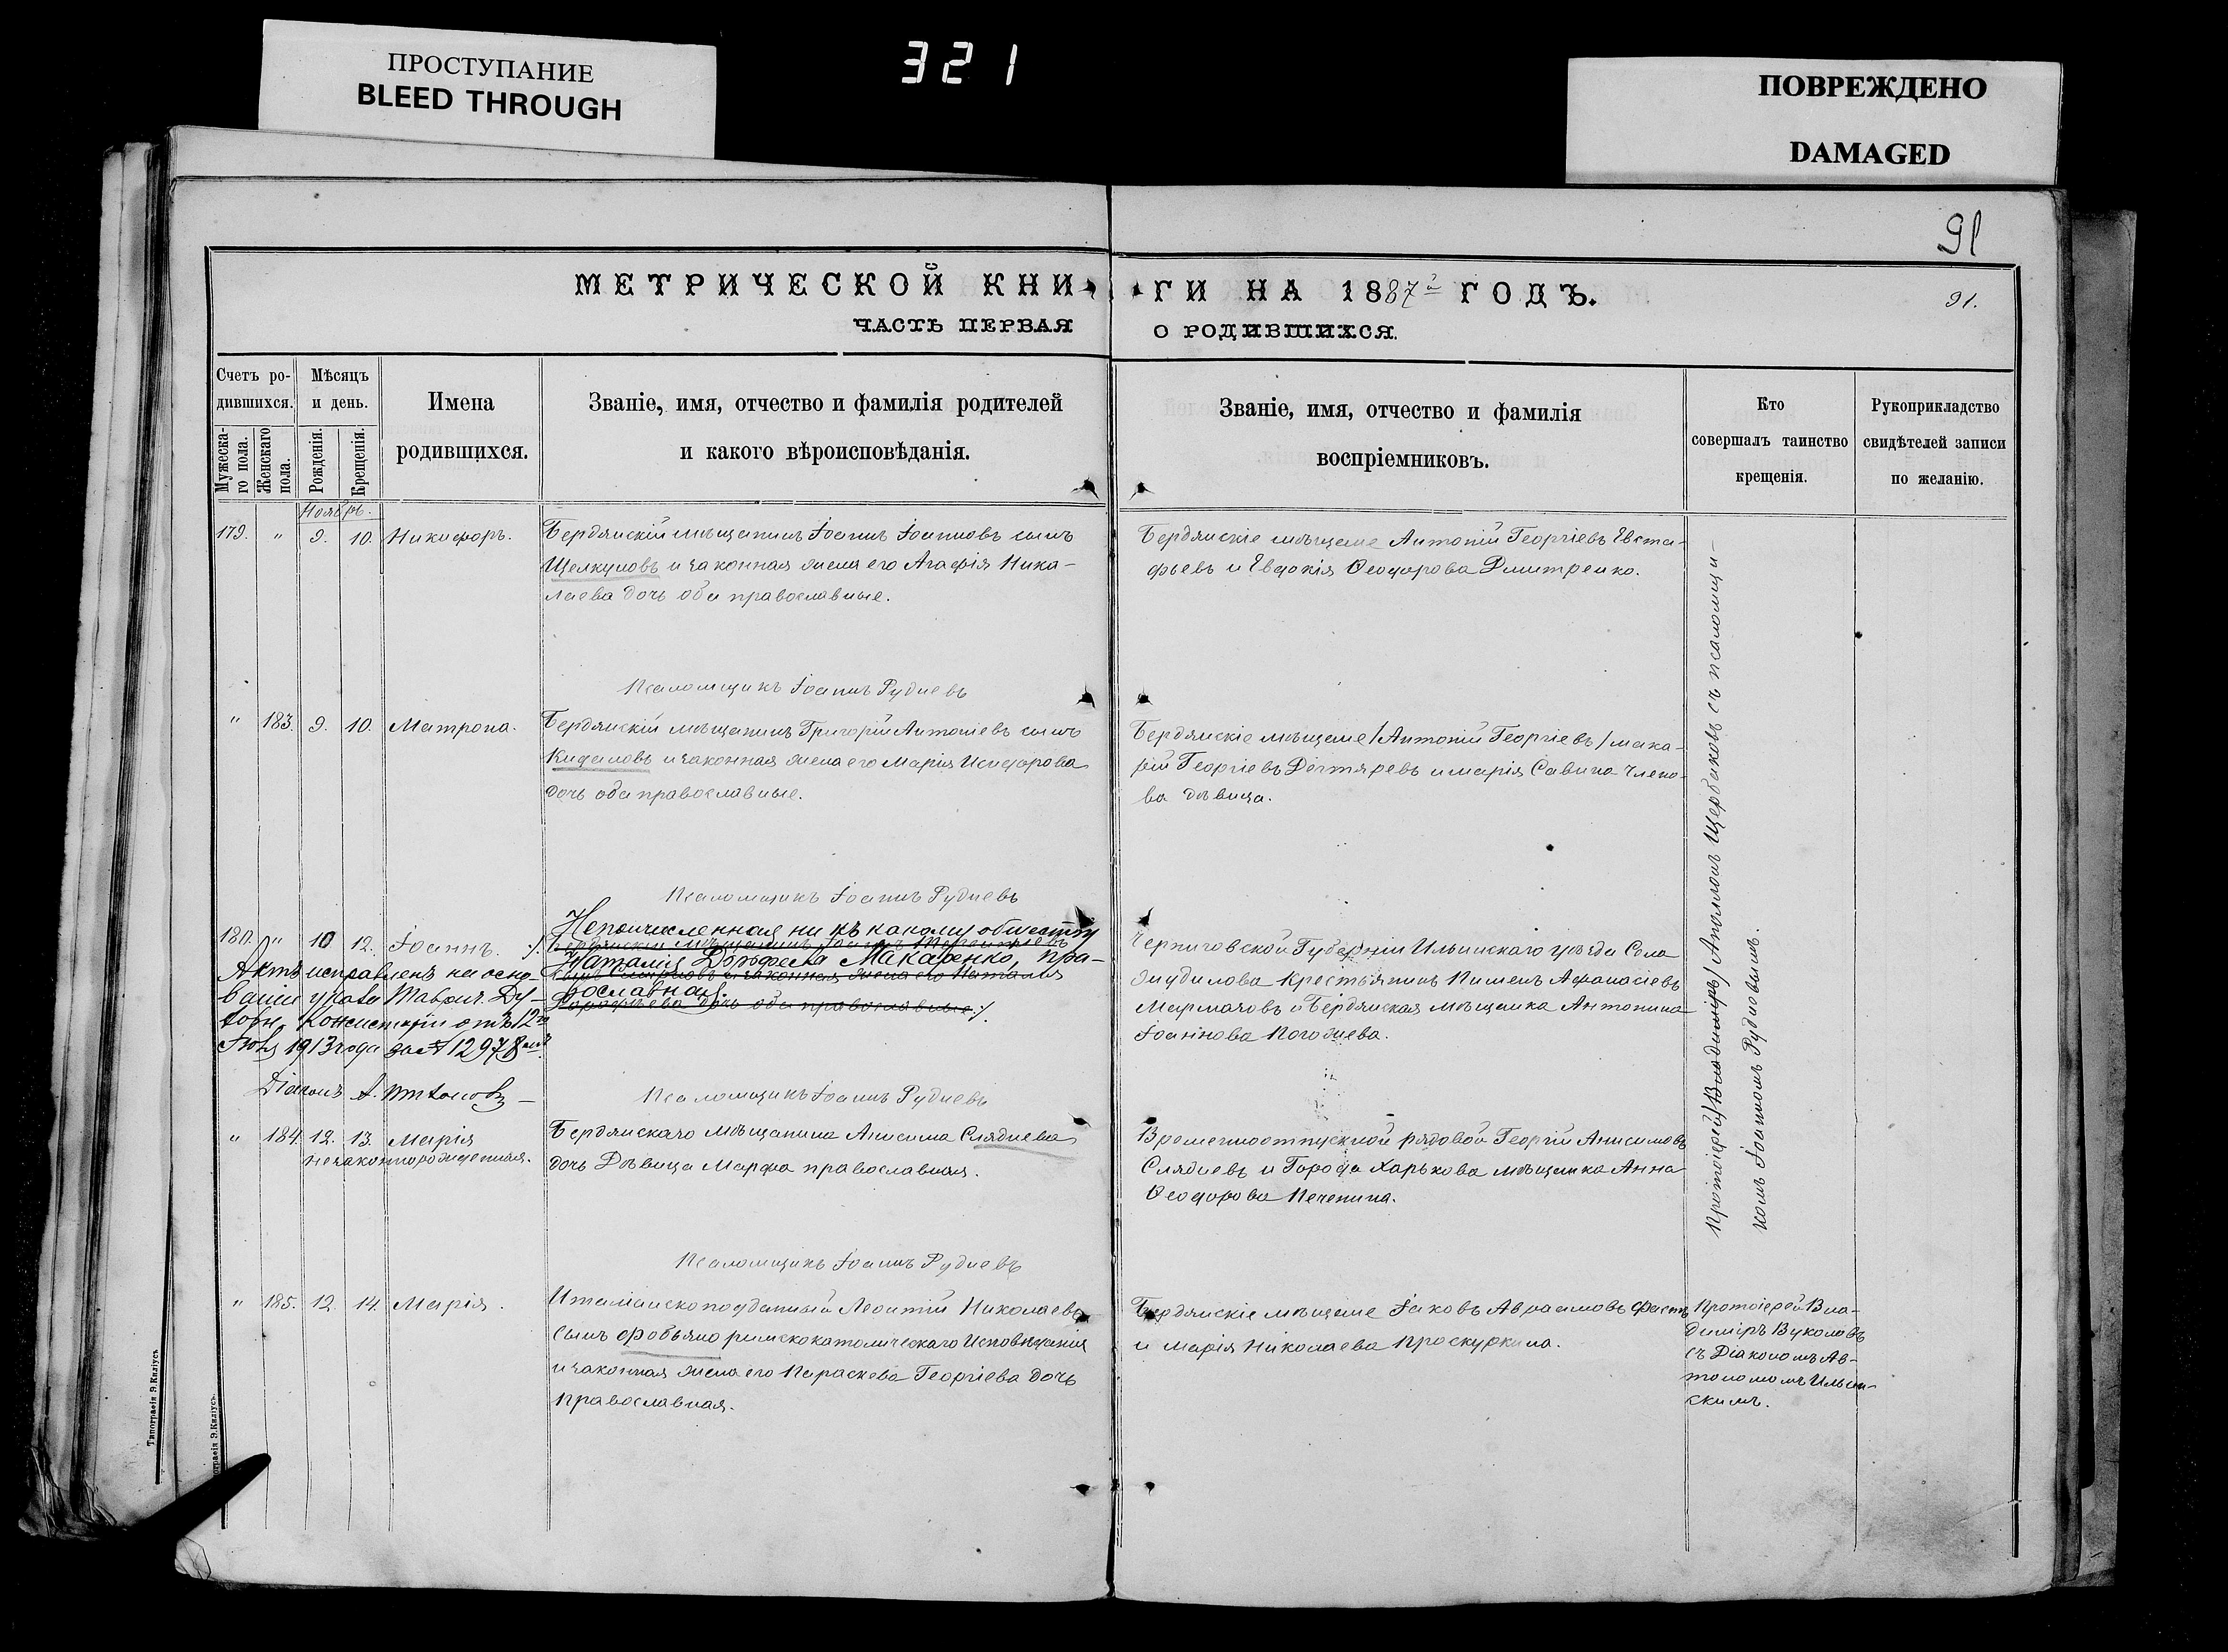 ПРОСТУПАНИЕ
BLEED THROUGH
321
ПОВРЕЖДЕНО
DAMAGED
91
МЕТРИЧЕСКОЙ КНИ-
ГИ НА 1887й ГОДЪ.
91.
ЧАСТЬ ПЕРВАЯ
О РОДИВШИХСЯ.
Счетъ ро-
дившихся.
Мужеска-
го пола.
Женскаго
пола.
Мѣсяцъ
и день.
Рожденія.
Крещенія.
Имена
родившихся.
Званіе, имя, отчество и фамилія родителей
и какого вѣроисповѣданія.
Званіе, имя, отчество и фамилія
воспріемниковъ.
Кто
совершалъ таинство
крещенія.
Рукоприкладство
свидѣтелей записи
по желанію.
Ноябрь.
179. " 9. 10. Никифоръ.
Бердянскій мѣщанинъ Іоаннъ Іоанновъ сынъ
Щелкуновъ и законная жена его Агафія Нико-
лаева дочь оба православные.
Бердянскіе мѣщане Антоній Георгіевъ Евста-
фьевъ и Евдокія Ѳеодорова Дмитренко.
Псаломщикъ Іоаннъ Рудневъ
" 183. 9. 10. Матрона.
Бердянскій мѣщанинъ Григорій Антоніевъ сынъ
Кидаловъ и законная жена его Марія Исидорова
дочь оба православные.
Бердянскіе мѣщане /Антоній Георгіевъ/ Мака-
рій Георгіевъ Дегтяревъ и Марія Савина Члено-
ва дѣвица.
Псаломщикъ Іоаннъ Рудневъ
180. " 10 12. Іоаннъ. ./.
Непричисленная ни къ какому обществу
Бердянскій мѣщанинъ
Наталія Дорофеева Макаренко, пра-
и законная жена его Наталія
вославная.
Дорофеева дочь оба православные ./.
Актъ исправленъ на осно-
ваніи указа Таврич. Ду-
ховн. Консисторіи отъ 12го
1913 года за № 12978мъ
Діаконъ А.
Черниговской Губерніи Уѣзда Села
Крестьянинъ Пименъ Афанасіевъ
Мармазовъ и Бердянская мѣщанка Антонина
Іоаннова Погожева.
Псаломщикъ Іоаннъ Рудневъ
" 184. 12. 13. Марія
незаконнорожденная.
Бердянскаго мѣщанина Анисима Сляднева
дочь Дѣвица Марфа православная.
Временноотпускной рядовой Георгій Анисимовъ
Слядневъ и Города Харькова мѣщанка Анна
Ѳеодорова Печенина.
Протоіерей /Владиміръ/ Аполлонъ Щербаковъ съ псаломщи-
комъ Іоанномъ Рудневымъ.
Псаломщикъ Іоаннъ Рудневъ
" 185. 12. 14. Марія.
Италіанскоподданный Леонтій Николаевъ
сынъ Фабьяно римскокатолическаго Исповѣданія
и законная жена его Параскева Георгіева дочь
православная.
Бердянскіе мѣщане Іаковъ Авраамовъ Фастъ
и Марія Николаева Проскуркина.
Протоіерей Вла-
диміръ Вуколовъ
съ Діакономъ Ав-
тономомъ Ильин-
скимъ.
Типографія Э.Киліусъ